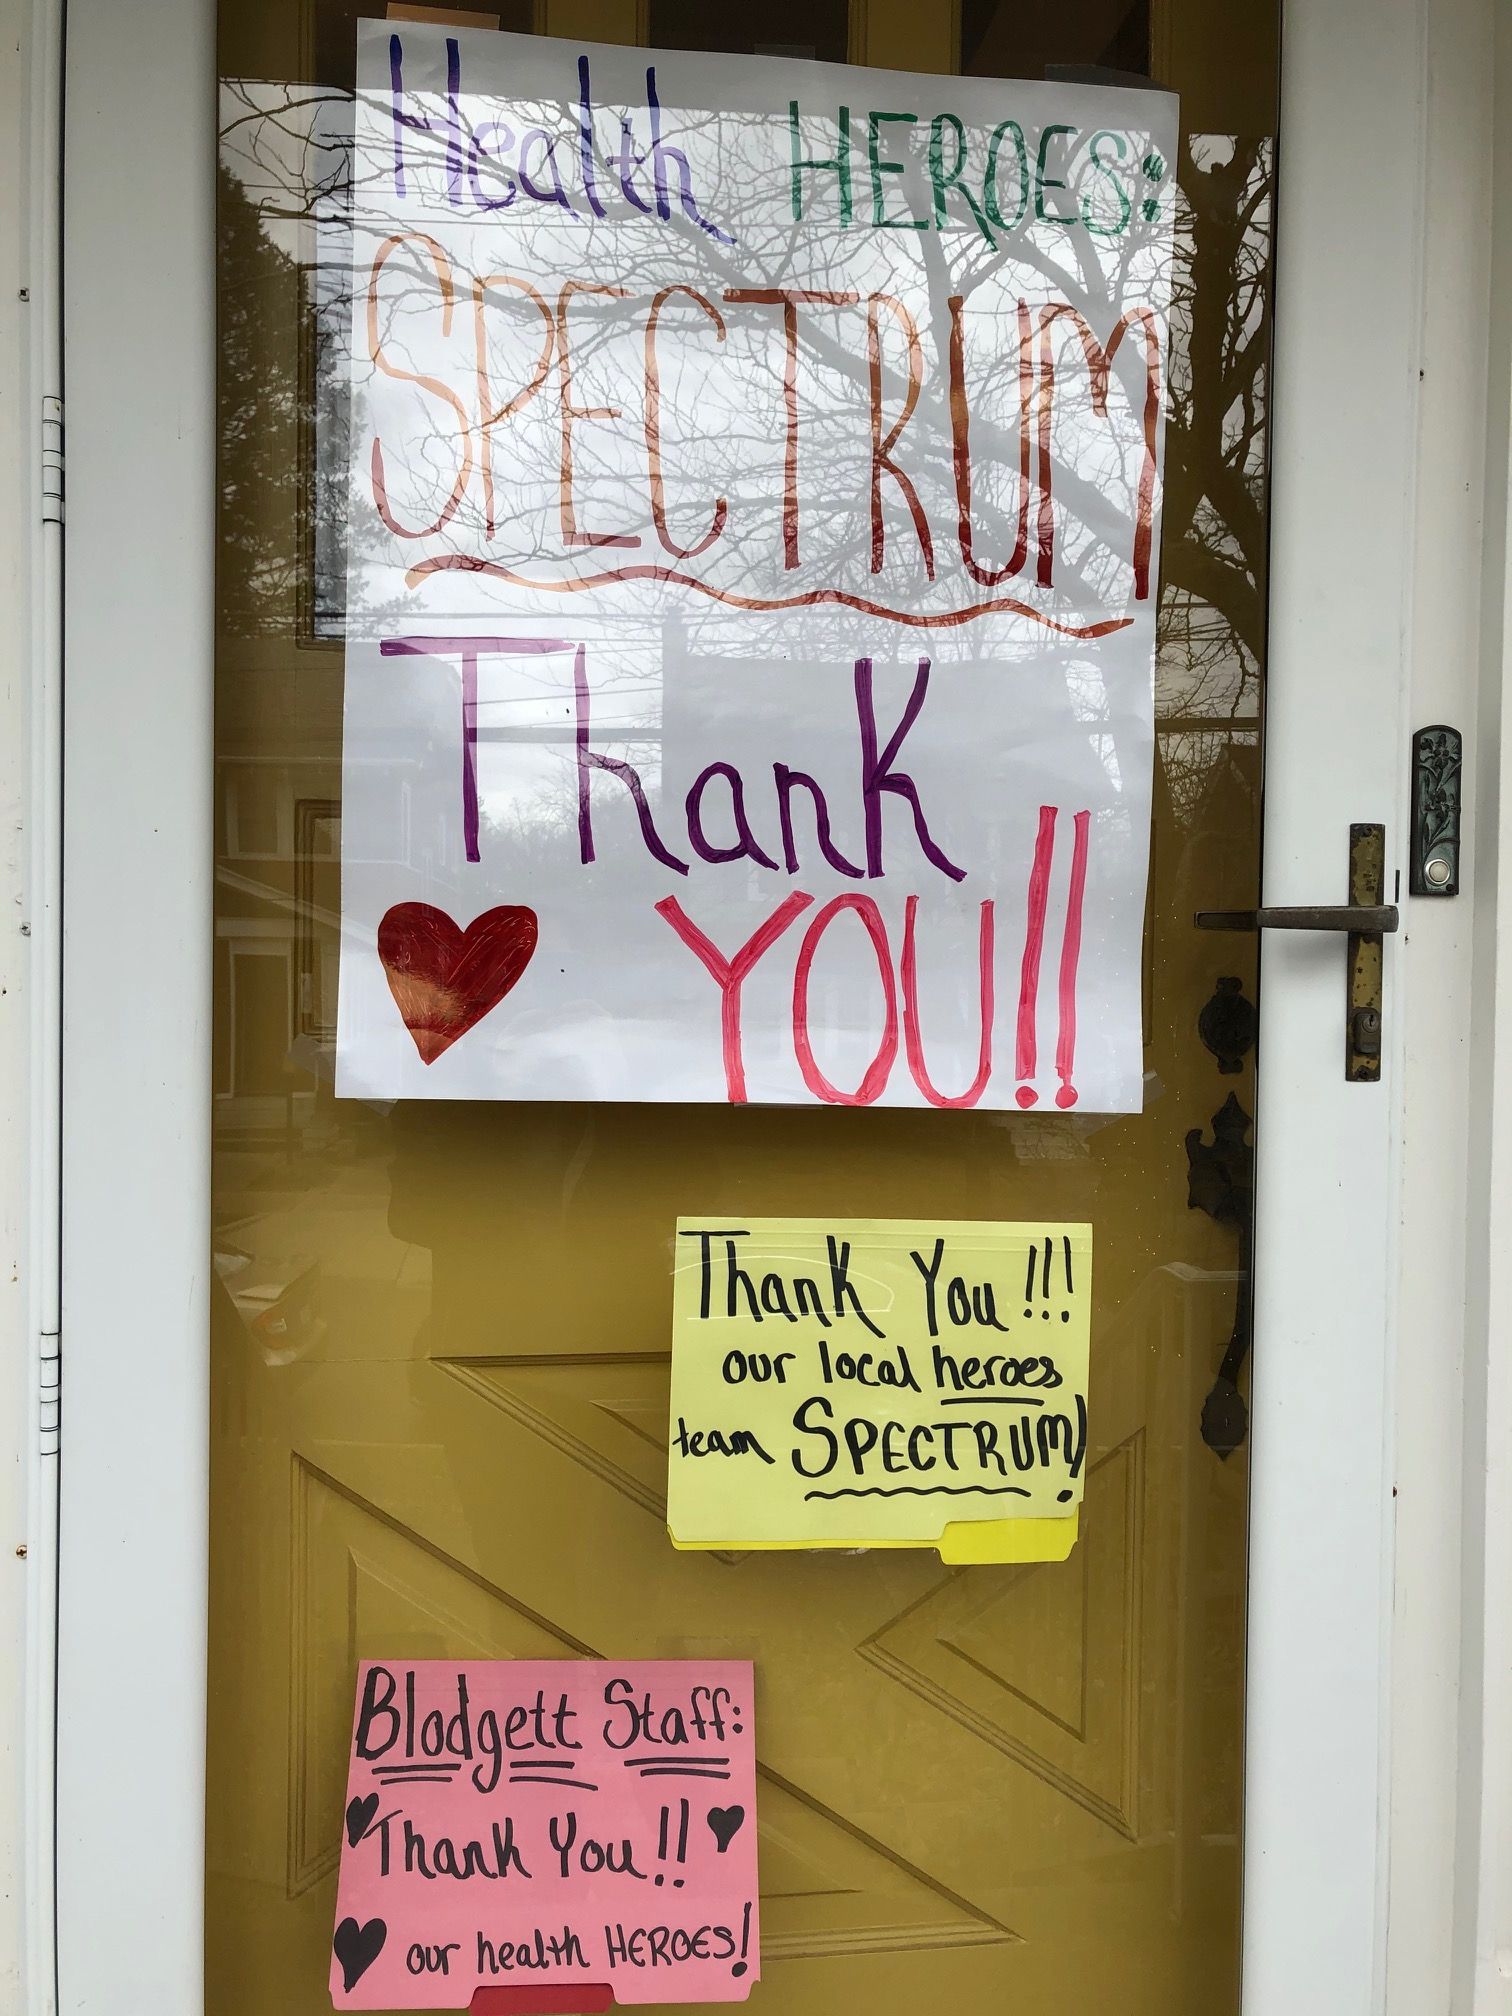 Health HEROES:
SPECTRUM
Thank
YOU!!
Thank You!!!
our local heroes
team SPECTRUM!
Blodgett Staff:
Thank You!!
our health HEROES!